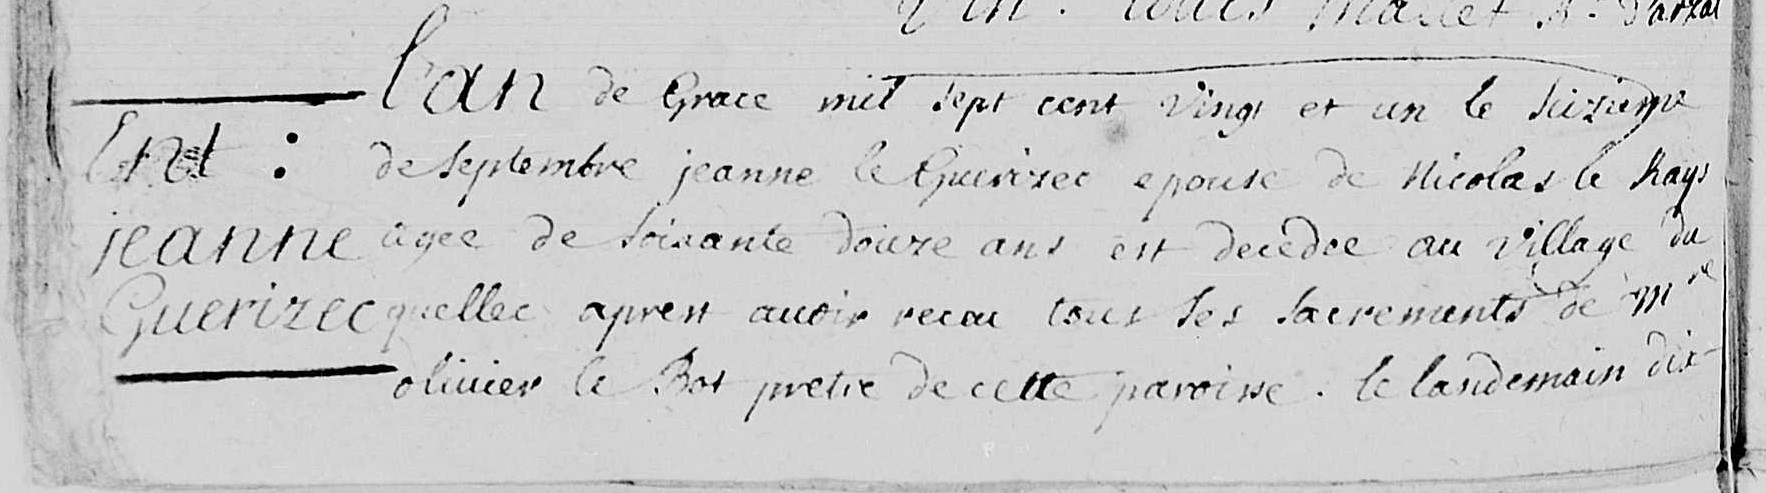 Louis Mallet
L'an de Grace mil sept cent vingt et un le seizieme
Ent : de septembre jeanne le Guerizec epouse de Nicolas le Rays
jeanne agee de soixante douze ans est decedee au village du
Guerizec quellec apres avoir recu tous ses sacrements de mre
olivier le Bot pretre de cette paroisse . le landemain dix